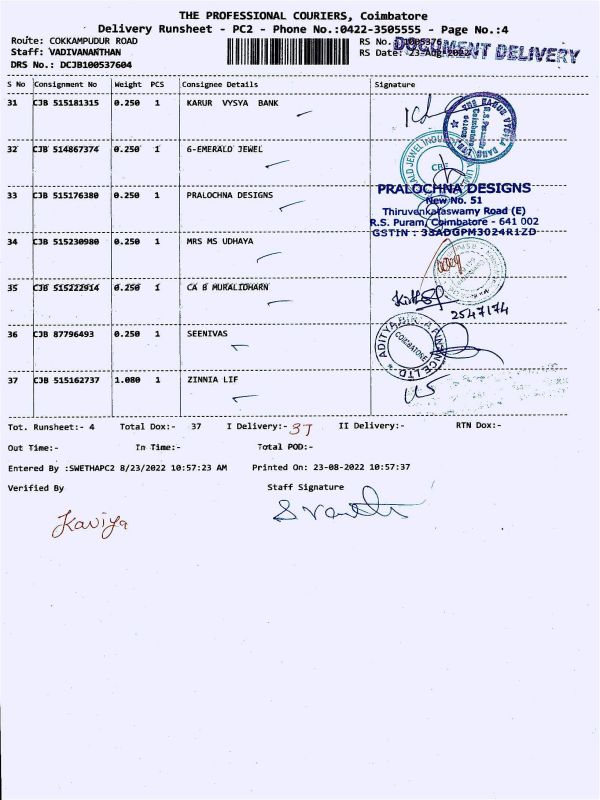 THE PROFESSIONAL COURIERS, Coimbatore
Delivery Runsheet - PC2 - Phone No.:0422-3505555 - Page No.:4
Route: COKKAMPUDUR ROAD
Staff: VADIVANANTHAN
DRS No.: DCJB100537604
RS No.
RS Date: 23-Aug-2022
DOCUMENT DELIVERY
S No Consignment No Weight PCS Consignee Details Signature
31 CJB 515181315 0.250 1 KARUR VYSYA BANK
32 CJB 514867374 0.250 1 6-EMERALD JEWEL
33 CJB 515176380 0.250 1 PRALOCHNA DESIGNS
PRALOCHNA DESIGNS
New No. 51
Thiruvenkataswamy Road (E)
R.S. Puram, Coimbatore - 641 002
GSTIN : 33ADGPM3024R1ZD
34 CJB 515230980 0.250 1 MRS MS UDHAYA
35 CJB 515222914 0.250 1 CA B MURALIDHARN
2547174
36 CJB 87796493 0.250 1 SEENIVAS
COIMBATORE
37 CJB 515162737 1.080 1 ZINNIA LIF
Tot. Runsheet:- 4 Total Dox:- 37 I Delivery:- 37 II Delivery:- RTN Dox:-
Out Time:- In Time:- Total POD:-
Entered By :SWETHAPC2 8/23/2022 10:57:23 AM Printed On: 23-08-2022 10:57:37
Verified By Staff Signature
Kaviya